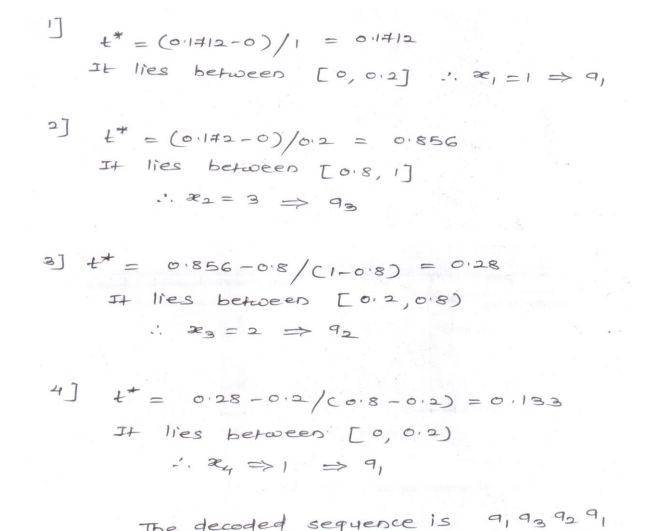 1] t* = (0.1712-0)/1 = 0.1712
It lies between [0, 0.2] ∴ x₁ = 1 ⇒ a₁
2] t* = (0.172-0)/0.2 = 0.856
It lies between [0.8, 1]
∴ x₂ = 3 ⇒ a₃
3] t* = 0.856-0.8/(1-0.8) = 0.28
It lies between [0.2, 0.8)
∴ x₃ = 2 ⇒ a₂
4] t* = 0.28-0.2/(0.8-0.2) = 0.133
It lies between [0, 0.2)
∴ x₄ ⇒ 1 ⇒ a₁
The decoded sequence is a₁ a₃ a₂ a₁